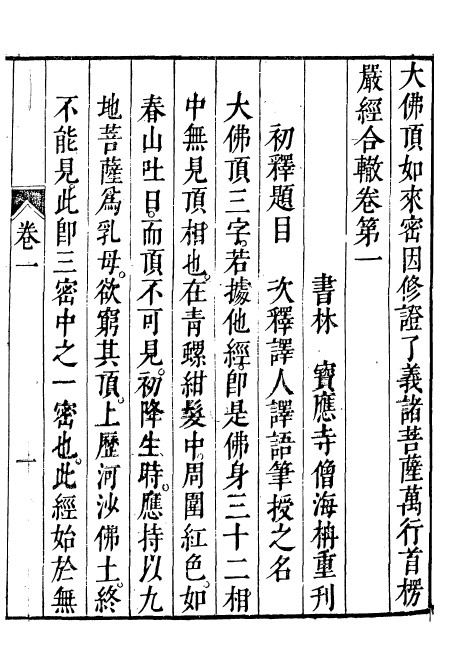 大佛頂如來密因修證了義諸菩薩萬行首楞
嚴經合轍卷第一
書林　寶應寺僧海栴重刊
初釋題目　次釋譯人譯語筆授之名
大佛頂三字。若據他經。卽是佛身三十二相
中無見頂相也。在青螺紺髮中。周圍紅色。如
春山吐日。而頂不可見。初降生時。應持以九
地菩薩爲乳母。欲窮其頂。上歷河沙佛土。終
不能見。此卽三密中之一密也。此經始於無
卷一
一